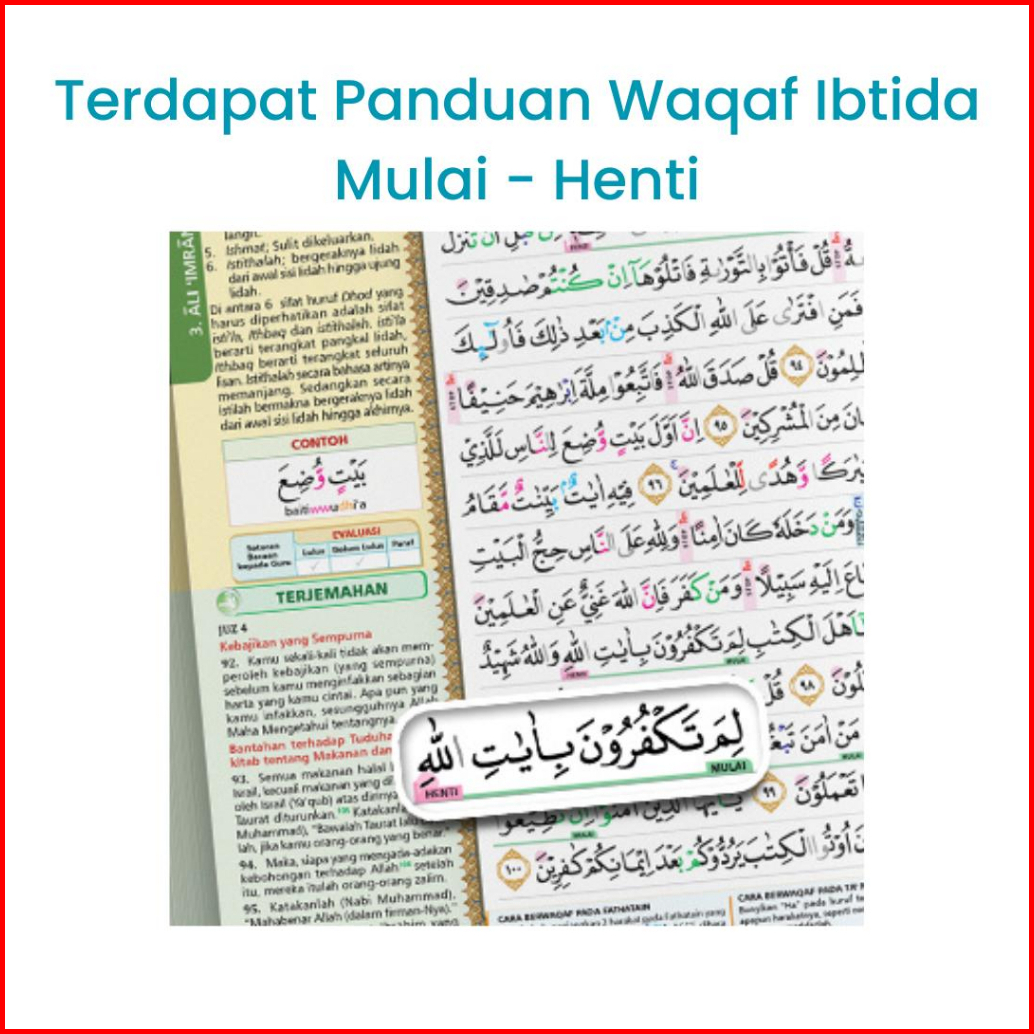 Terdapat Panduan Waqaf Ibtida
Mulai - Henti
3. ĀLI 'IMRĀN
langit.
5. Ishmat; Sulit dikeluarkan.
6. Istithalah; bergeraknya lidah
dari awal sisi lidah hingga ujung
lidah.
Di antara 6 sifat huruf Dhod yang
harus diperhatikan adalah sifat
isti'la, ithbaq dan istithalah. Isti'la
berarti terangkat pangkal lidah,
Ithbaq berarti terangkat seluruh
lisan. Istithalah secara bahasa artinya
memanjang. Sedangkan secara
istilah bermakna bergeraknya lidah
dari awal sisi lidah hingga akhirnya.
CONTOH
بَيْتٍ وُّضِعَ
baitiwwudhi'a
EVALUASI
Setoran
Bacaan
kepada Guru
Lulus Belum Lulus Paraf
TERJEMAHAN
JUZ 4
Kebajikan yang Sempurna
92. Kamu sekali-kali tidak akan mem-
peroleh kebajikan (yang sempurna)
sebelum kamu menginfakkan sebagian
harta yang kamu cintai. Apa pun yang
kamu infakkan, sesungguhnya Allah
Maha Mengetahui tentangnya.
Bantahan terhadap
kitab tentang Makanan dan
93. Semua makanan halal
Israil, kecuali makanan yang
oleh Israil (Ya'qub) atas
Taurat diturunkan. Katakanlah
Muhammad), "Bawalah Taurat
lah, jika kamu orang-orang yang benar."
94. Maka, siapa yang mengada-adakan
kebohongan terhadap Allah setelah
itu, mereka itulah orang-orang zalim.
95. Katakanlah (Nabi Muhammad),
"Mahabenar Allah (dalam firman-Nya)."
قُلْ فَأْتُوْا بِالتَّوْرٰىةِ فَاتْلُوْهَآ اِنْ كُنْتُمْ صٰدِقِيْنَ
فَمَنِ افْتَرٰى عَلَى اللّٰهِ الْكَذِبَ مِنْۢ بَعْدِ ذٰلِكَ فَاُولٰۤىِٕكَ
٩٤ قُلْ صَدَقَ اللّٰهُ فَاتَّبِعُوْا مِلَّةَ اِبْرٰهِيْمَ حَنِيْفًا
مِنَ الْمُشْرِكِيْنَ ٩٥ اِنَّ اَوَّلَ بَيْتٍ وُّضِعَ لِلنَّاسِ لَلَّذِيْ
وَّهُدًى لِّلْعٰلَمِيْنَ ٩٦ فِيْهِ اٰيٰتٌۢ بَيِّنٰتٌ مَّقَامُ
وَمَنْ دَخَلَهٗ كَانَ اٰمِنًا وَلِلّٰهِ عَلَى النَّاسِ حِجُّ الْبَيْتِ
اِلَيْهِ سَبِيْلًا وَمَنْ كَفَرَ فَاِنَّ اللّٰهَ غَنِيٌّ عَنِ الْعٰلَمِيْنَ
الْكِتٰبِ لِمَ تَكْفُرُوْنَ بِاٰيٰتِ اللّٰهِ وَاللّٰهُ شَهِيْدٌ
HENTI MULAI
٩٨ قُلْ
لِمَ تَكْفُرُوْنَ بِاٰيٰتِ اللّٰهِ
HENTI MULAI
مَنْ اٰمَنَ
تَعْمَلُوْنَ ٩٩
اُوْتُوا الْكِتٰبَ يَرُدُّوْكُمْ بَعْدَ اِيْمَانِكُمْ كٰفِرِيْنَ ١٠٠
CARA BERWAQAF PADA FATHATAIN
CARA BERWAQAF PADA TA'